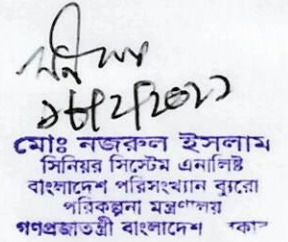 ১৮/২/২০২১
মোঃ নজরুল ইসলাম
সিনিয়র সিস্টেম এনালিষ্ট
বাংলাদেশ পরিসংখ্যান ব্যুরো
পরিকল্পনা মন্ত্রণালয়
গণপ্রজাতন্ত্রী বাংলাদেশ